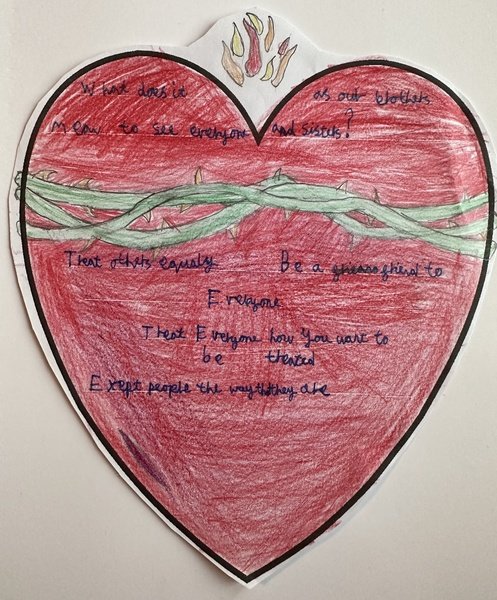 What does it as our brothers
mean to see everyone and sisters?
Treat others equaly Be a friend to
Everyone
Threat Everyone how You want to
be threated
Exept people the way thhey are